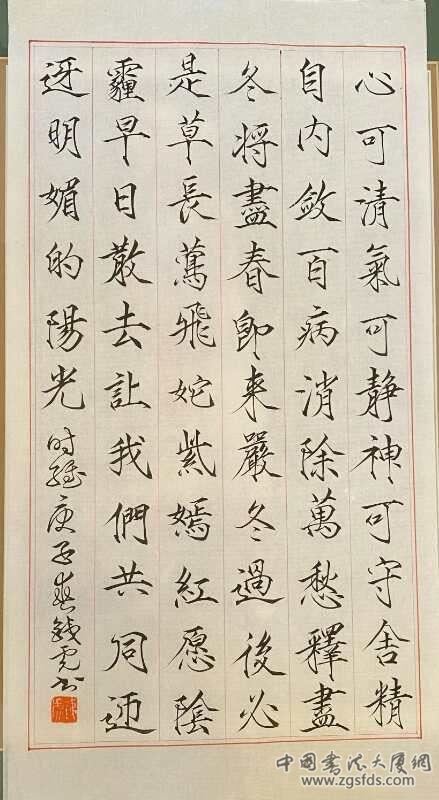 心可清氣可靜神可守舍精
自内斂百病消除萬愁釋盡
冬將盡春即来嚴冬過後必
是草長鶯飛姹紫嫣紅愿陰
霾早日散去让我們共同迎
迓明媚的陽光
时 庚子春 书
中國書法大厦網
www.zgsfds.com